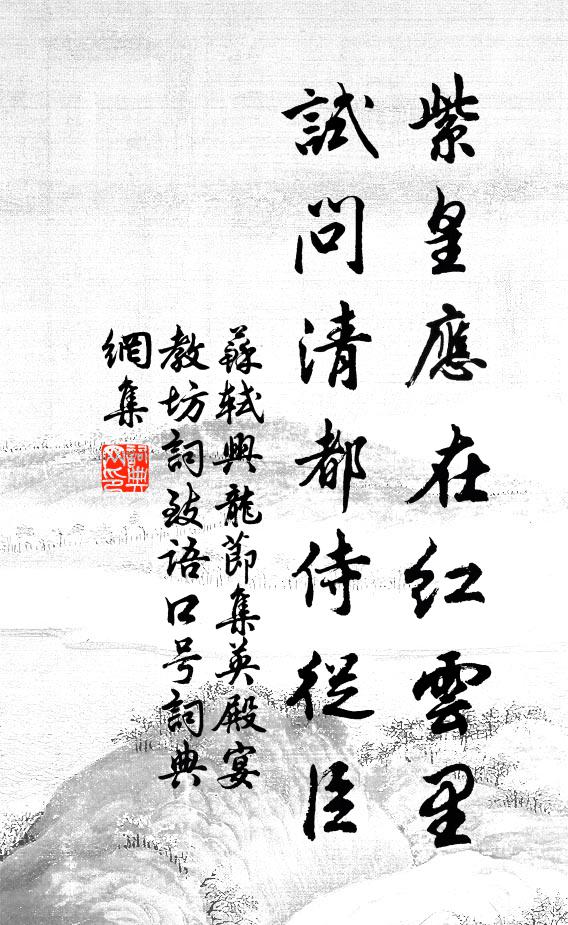 紫皇應在紅雲里
試問清都侍從臣
蘇軾興龍節集英殿宴
教坊詞致語口号詞典
網集
詞典
网印